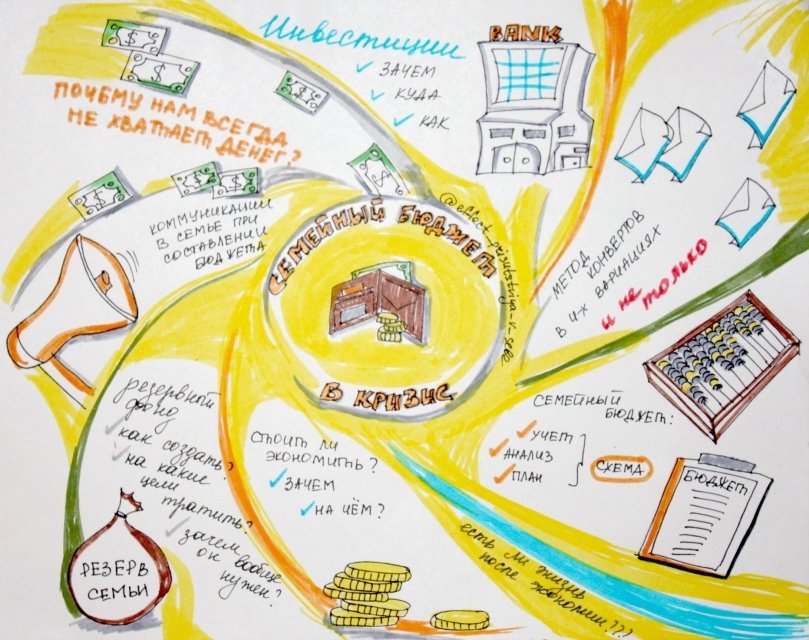 СЕМЕЙНЫЙ БЮДЖЕТ
В КРИЗИС
Инвестиции
✓ ЗАЧЕМ
✓ КУДА
✓ КАК
BANK
ПОЧЕМУ НАМ ВСЕГДА
НЕ ХВАТАЕТ ДЕНЕГ?
КОММУНИКАЦИИ
В СЕМЬЕ ПРИ
СОСТАВЛЕНИИ
БЮДЖЕТА
МЕТОД КОНВЕРТОВ
В ИХ ВАРИАЦИЯХ
и не только
СЕМЕЙНЫЙ
БЮДЖЕТ:
✓ УЧЕТ
✓ АНАЛИЗ
✓ ПЛАН
СХЕМА
БЮДЖЕТ
есть ли жизнь
после экономии???
СТОИТ ЛИ
ЭКОНОМИТЬ?
✓ ЗАЧЕМ
✓ НА ЧЁМ?
резервный
фонд
✓ как создать?
✓ на какие
цели
тратить?
✓ зачем
он вообще
нужен?
РЕЗЕРВ
СЕМЬИ